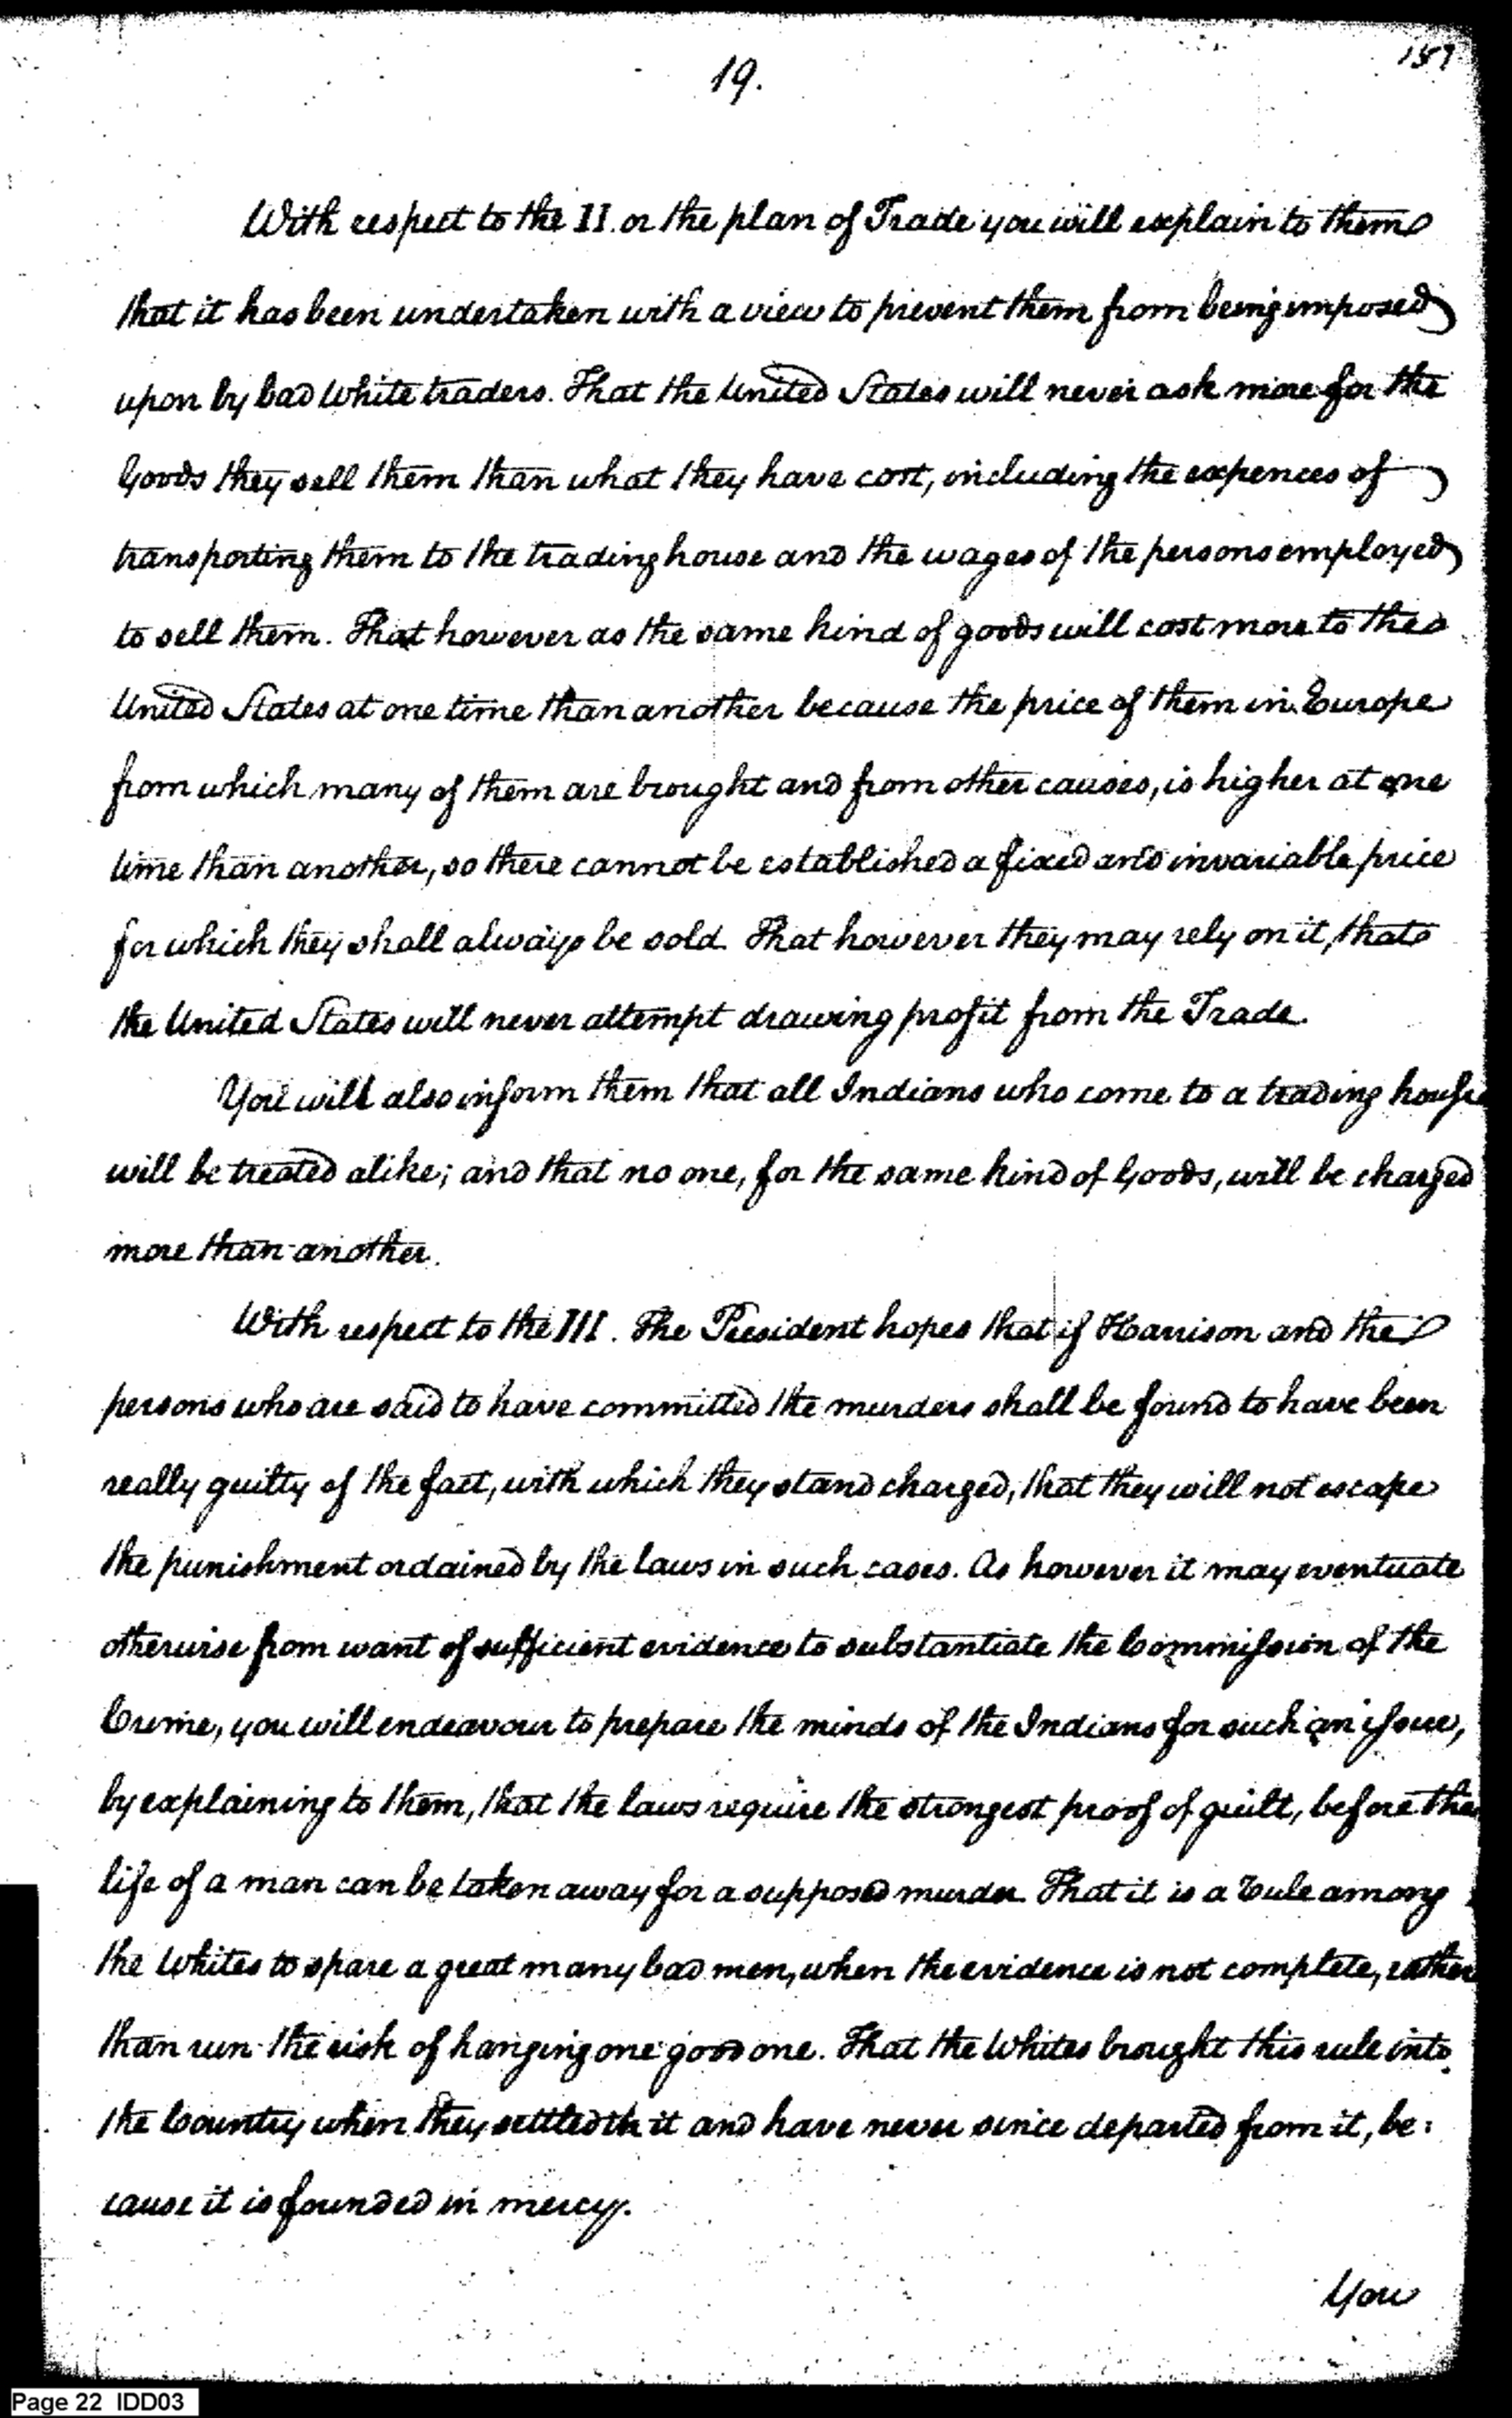 19.
With respect to the II. or the plan of Trade you will explain to them
that it has been undertaken with a view to prevent them from being imposed
upon by bad White traders. That the United States will never ask more for the
Goods they sell them than what they have cost, including the expences of
transporting them to the trading house and the wages of the persons employed
to sell them. That however as the same kind of goods will cost more to the
United States at one time than another because the price of them in Europe
from which many of them are brought and from other causes, is higher at one
time than another, so there cannot be established a fixed and invariable price
for which they shall always be sold. That however they may rely on it, that
the United States will never attempt drawing profit from the Trade.
You will also inform them that all Indians who come to a trading house
will be treated alike; and that no one, for the same kind of Goods, will be charged
more than another.
With respect to the III. The President hopes that if Harrison and the
persons who are said to have committed the murders shall be found to have been
really guilty of the fact, with which they stand charged, that they will not escape
the punishment ordained by the laws in such cases. As however it may eventuate
otherwise from want of sufficient evidence to substantiate the Commission of the
Crime, you will endeavour to prepare the minds of the Indians for such an issue,
by explaining to them, that the laws require the strongest proof of guilt, before the
life of a man can be taken away for a supposed murder. That it is a rule among
the Whites to spare a great many bad men, when the evidence is not complete, rather
than run the risk of hanging one good one. That the Whites brought this rule into
the Country when they settled in it and have never since departed from it, be:
cause it is founded in mercy.
You
Page 22 IDD03